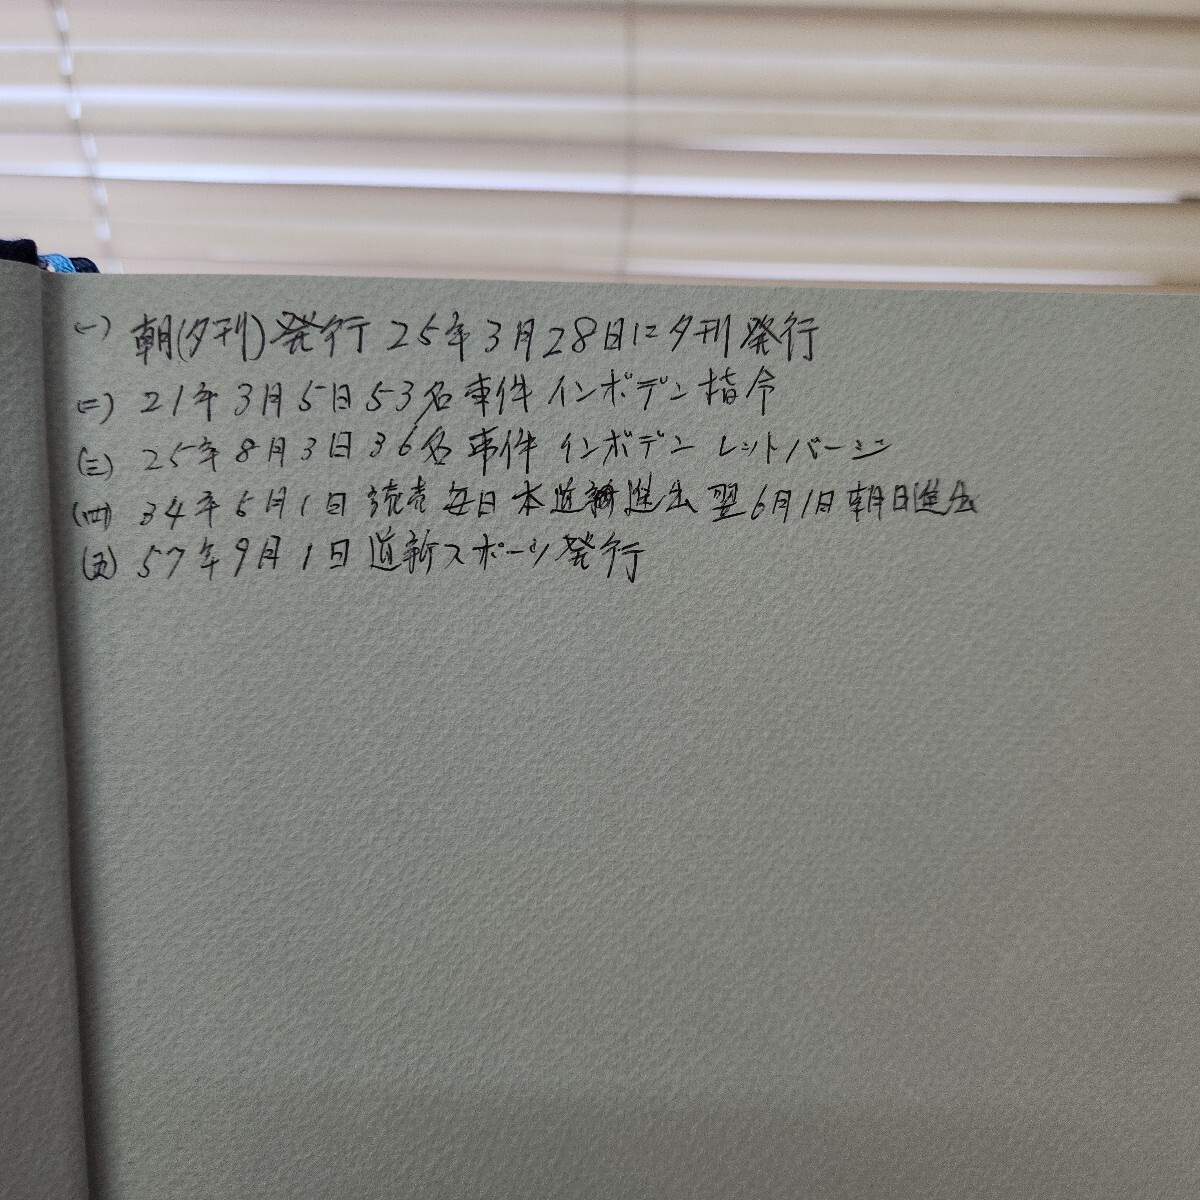 (一) 朝(夕刊)発行 25年3月28日に夕刊発行
(二) 21年3月5日53名事件 インボデン指令
(三) 25年8月3日36名事件 インボデン レットパージ
(四) 34年5月1日 読売 毎日 本道 進出 翌6月1日朝日進出
(五) 57年9月1日 道新スポーツ発行